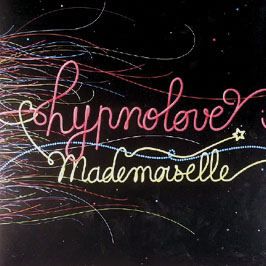 hypnolove
Mademoiselle